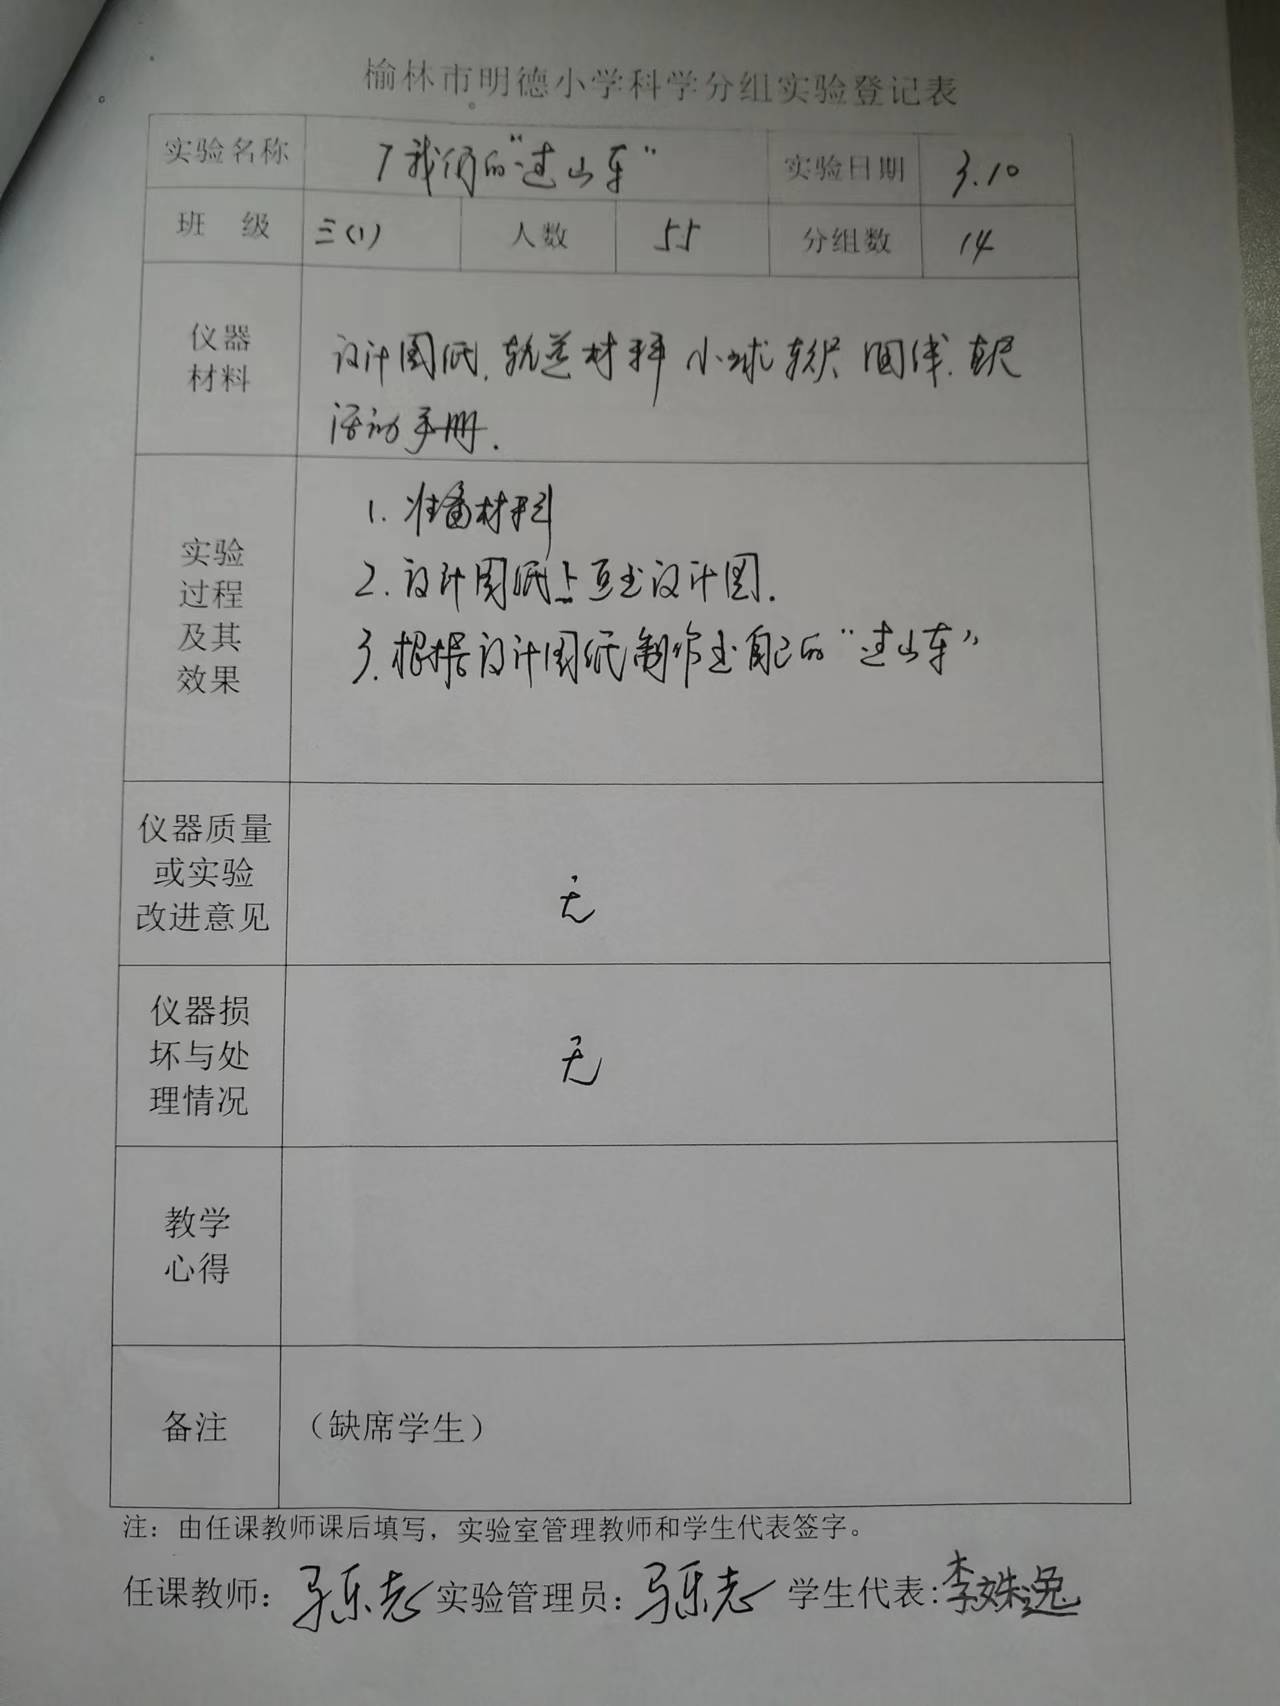 榆林市明德小学科学分组实验登记表
实验名称 7 我们的“过山车” 实验日期 3.10
班 级 三(1) 人数 55 分组数 14
仪器
材料
设计图纸. 轨道材料 小球 软尺 围线. 直尺
活动手册.
实验
过程
及其
效果
1. 准备材料
2. 设计图纸上画出设计图.
3. 根据设计图纸制作出自己的“过山车”
仪器质量
或实验
改进意见
无
仪器损
坏与处
理情况
无
教学
心得
备注 （缺席学生）
注：由任课教师课后填写，实验室管理教师和学生代表签字。
任课教师： 马乐志 实验管理员： 马乐志 学生代表: 李姝逸